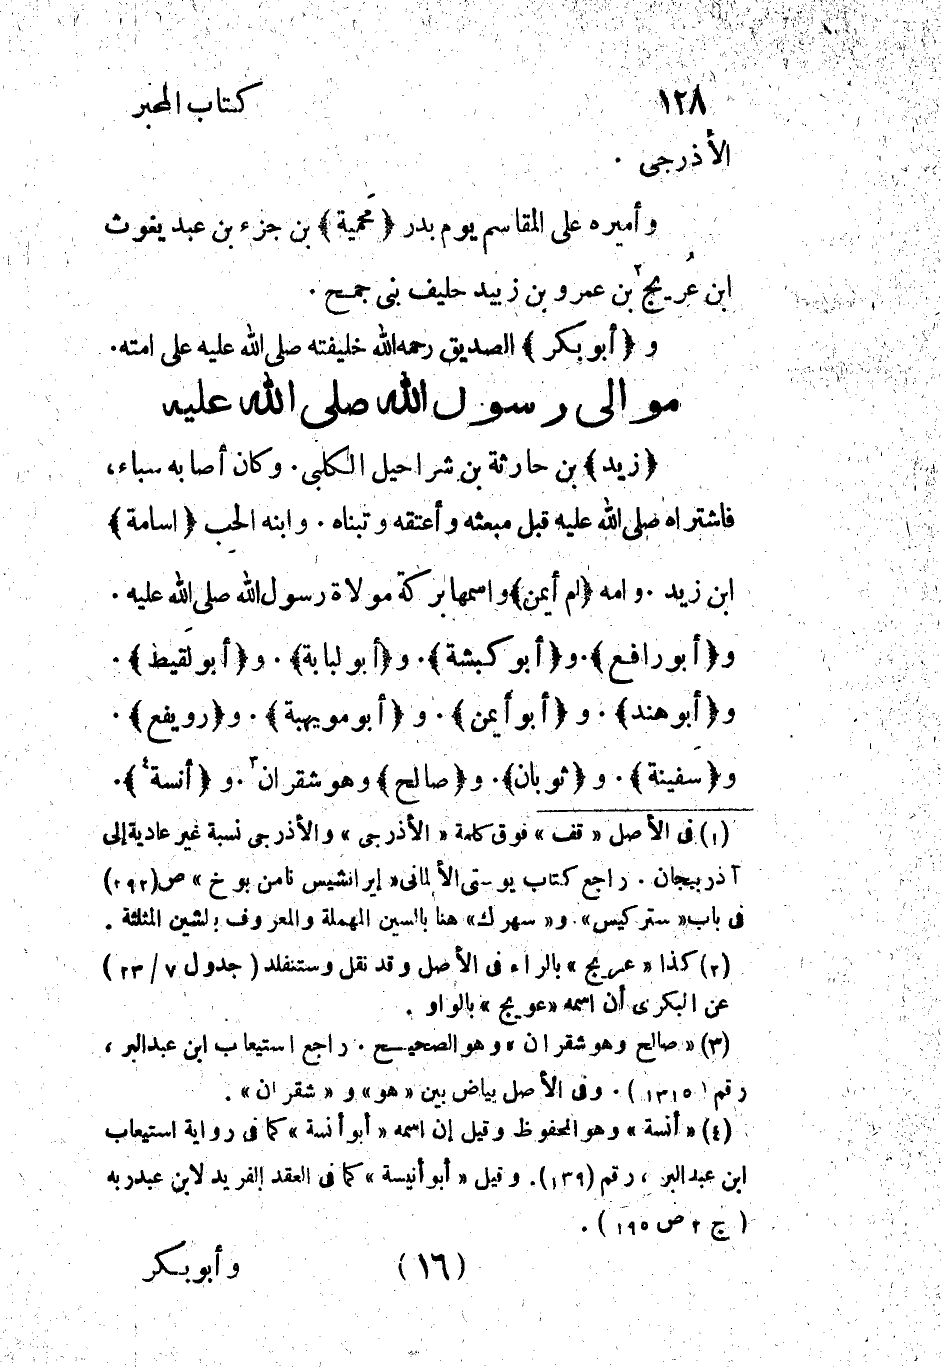 ١٢٨ كتاب المحبر
الأذرجى .
وأميره على المقاسم يوم بدر ﴿مَحْمية﴾ بن جزء بن عبد يغوث
ابن عُريج٢ بن عمرو بن زبيد حليف بنى جمح .
و ﴿أبو بكر﴾ الصديق رحمه الله خليفته صلى الله عليه على امته.
موالى رسول الله صلى الله عليه
﴿زيد﴾ بن حارثة بن شراحيل الكلبى. وكان أصابه سباء،
فاشتراه صلى الله عليه قبل مبعثه وأعتقه وتبناه . وابنه الحِب ﴿اسامة﴾
ابن زيد . وامه ﴿ام أيمن﴾ واسمها بركة مولاة رسول الله صلى الله عليه .
و﴿أبو رافع﴾. و﴿أبو كبشة﴾. و﴿أبو لبابة﴾. و﴿أبو لَقيط﴾.
و﴿أبو هند﴾. و ﴿أبو أيمن﴾. و ﴿أبو مويهبة﴾. و﴿رويفع﴾.
و﴿سَفينة﴾. و ﴿ثوبان﴾. و﴿صالح﴾ وهو شقران٣. و ﴿أنسة٤﴾.
(١) فى الأصل «قف» فوق كلمة «الأذرجى» والأذرجى نسبة غير عادية إلى
آذربيجان . راجع كتاب يوستى الألمانى «إيرانشيس نامن بوخ» ص(٢٩٢)
فى باب «ستركيس». و«سهرك» هنا بالسين المهملة والمعروف بالشين المثلثة .
(٢) كذا «عريج» بالراء فى الأصل وقد نقل وستنفلد (جدول ٧/ ٢٣)
عن البكرى أن اسمه «عويج» بالواو .
(٣) «صالح وهو شقران» وهو الصحيح . راجع استيعاب ابن عبدالبر ،
رقم (١٣١٥) . وفى الأصل بياض بين «هو» و «شقران» .
(٤) «أنسة» وهو المحفوظ وقيل إن اسمه «أبو أنسة» كما فى رواية استيعاب
ابن عبدالبر ، رقم (١٣٩). وقيل «أبو أنيسة» كما فى العقد الفريد لابن عبدربه
( ج ٢ ص ١٩٥ ) .
(١٦) وأبو بكر